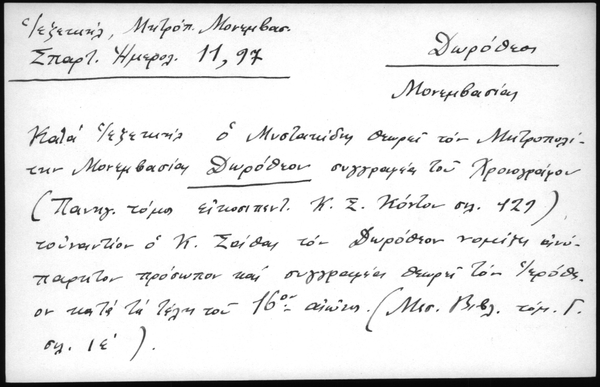 Ἐξετική, Μητρόπ. Μονεμβασ.
Σπαρτ. Ἡμερολ. 11, 97
Δωρόθεος
Μονεμβασίας
Κατὰ Ἐξετικὴν ὁ Μυστακίδης θεωρεῖ τὸν Μητροπολί-
την Μονεμβασίας Δωρόθεον συγγραφέα τοῦ Χρονογράφου
(Πανηγ. τόμος εἰκοσιπεντ. Κ. Σ. Κόντου σελ. 129),
τοὐναντίον ὁ Κ. Σάθας τὸν Δωρόθεον νομίζει ἀνύ-
παρκτον πρόσωπον καὶ συγγραφέα θεωρεῖ τὸν Ἱερόθε-
ον κατὰ τὰ τέλη τοῦ 16ου αἰῶνος. (Μεσ. Βιβλ. τόμ. Γ.
σελ. ιε΄).